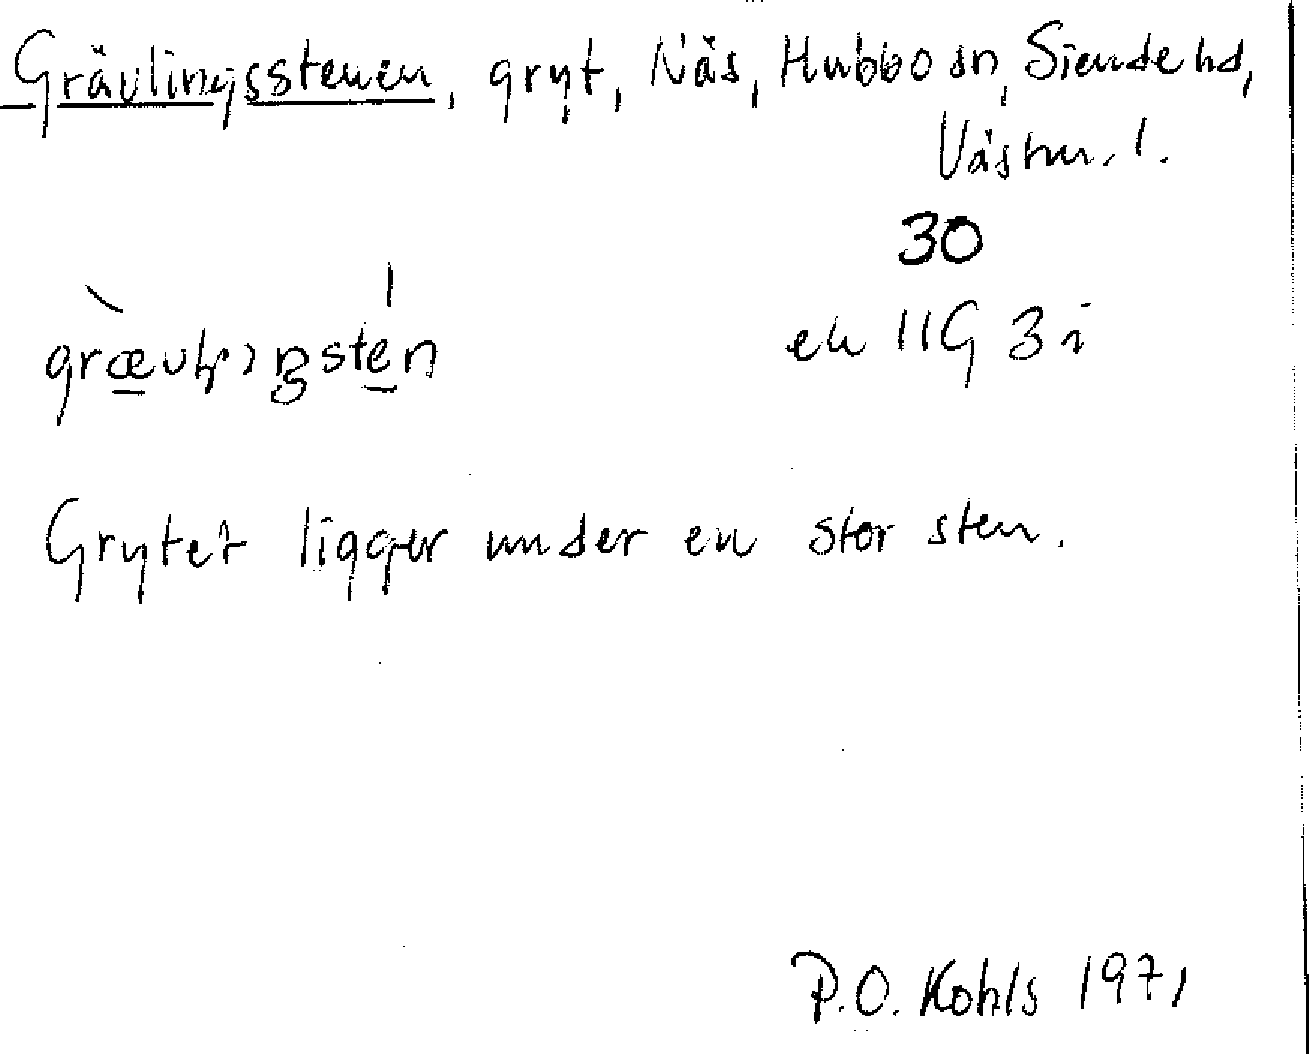 Grävlingsstenen, gryt, Näs, Hubbo sn, Siende hd,
Västm. l.
30
ek 11G 3i
grævlıŋstēn
Grytet ligger under en stor sten.
P.O. Kohls 1971